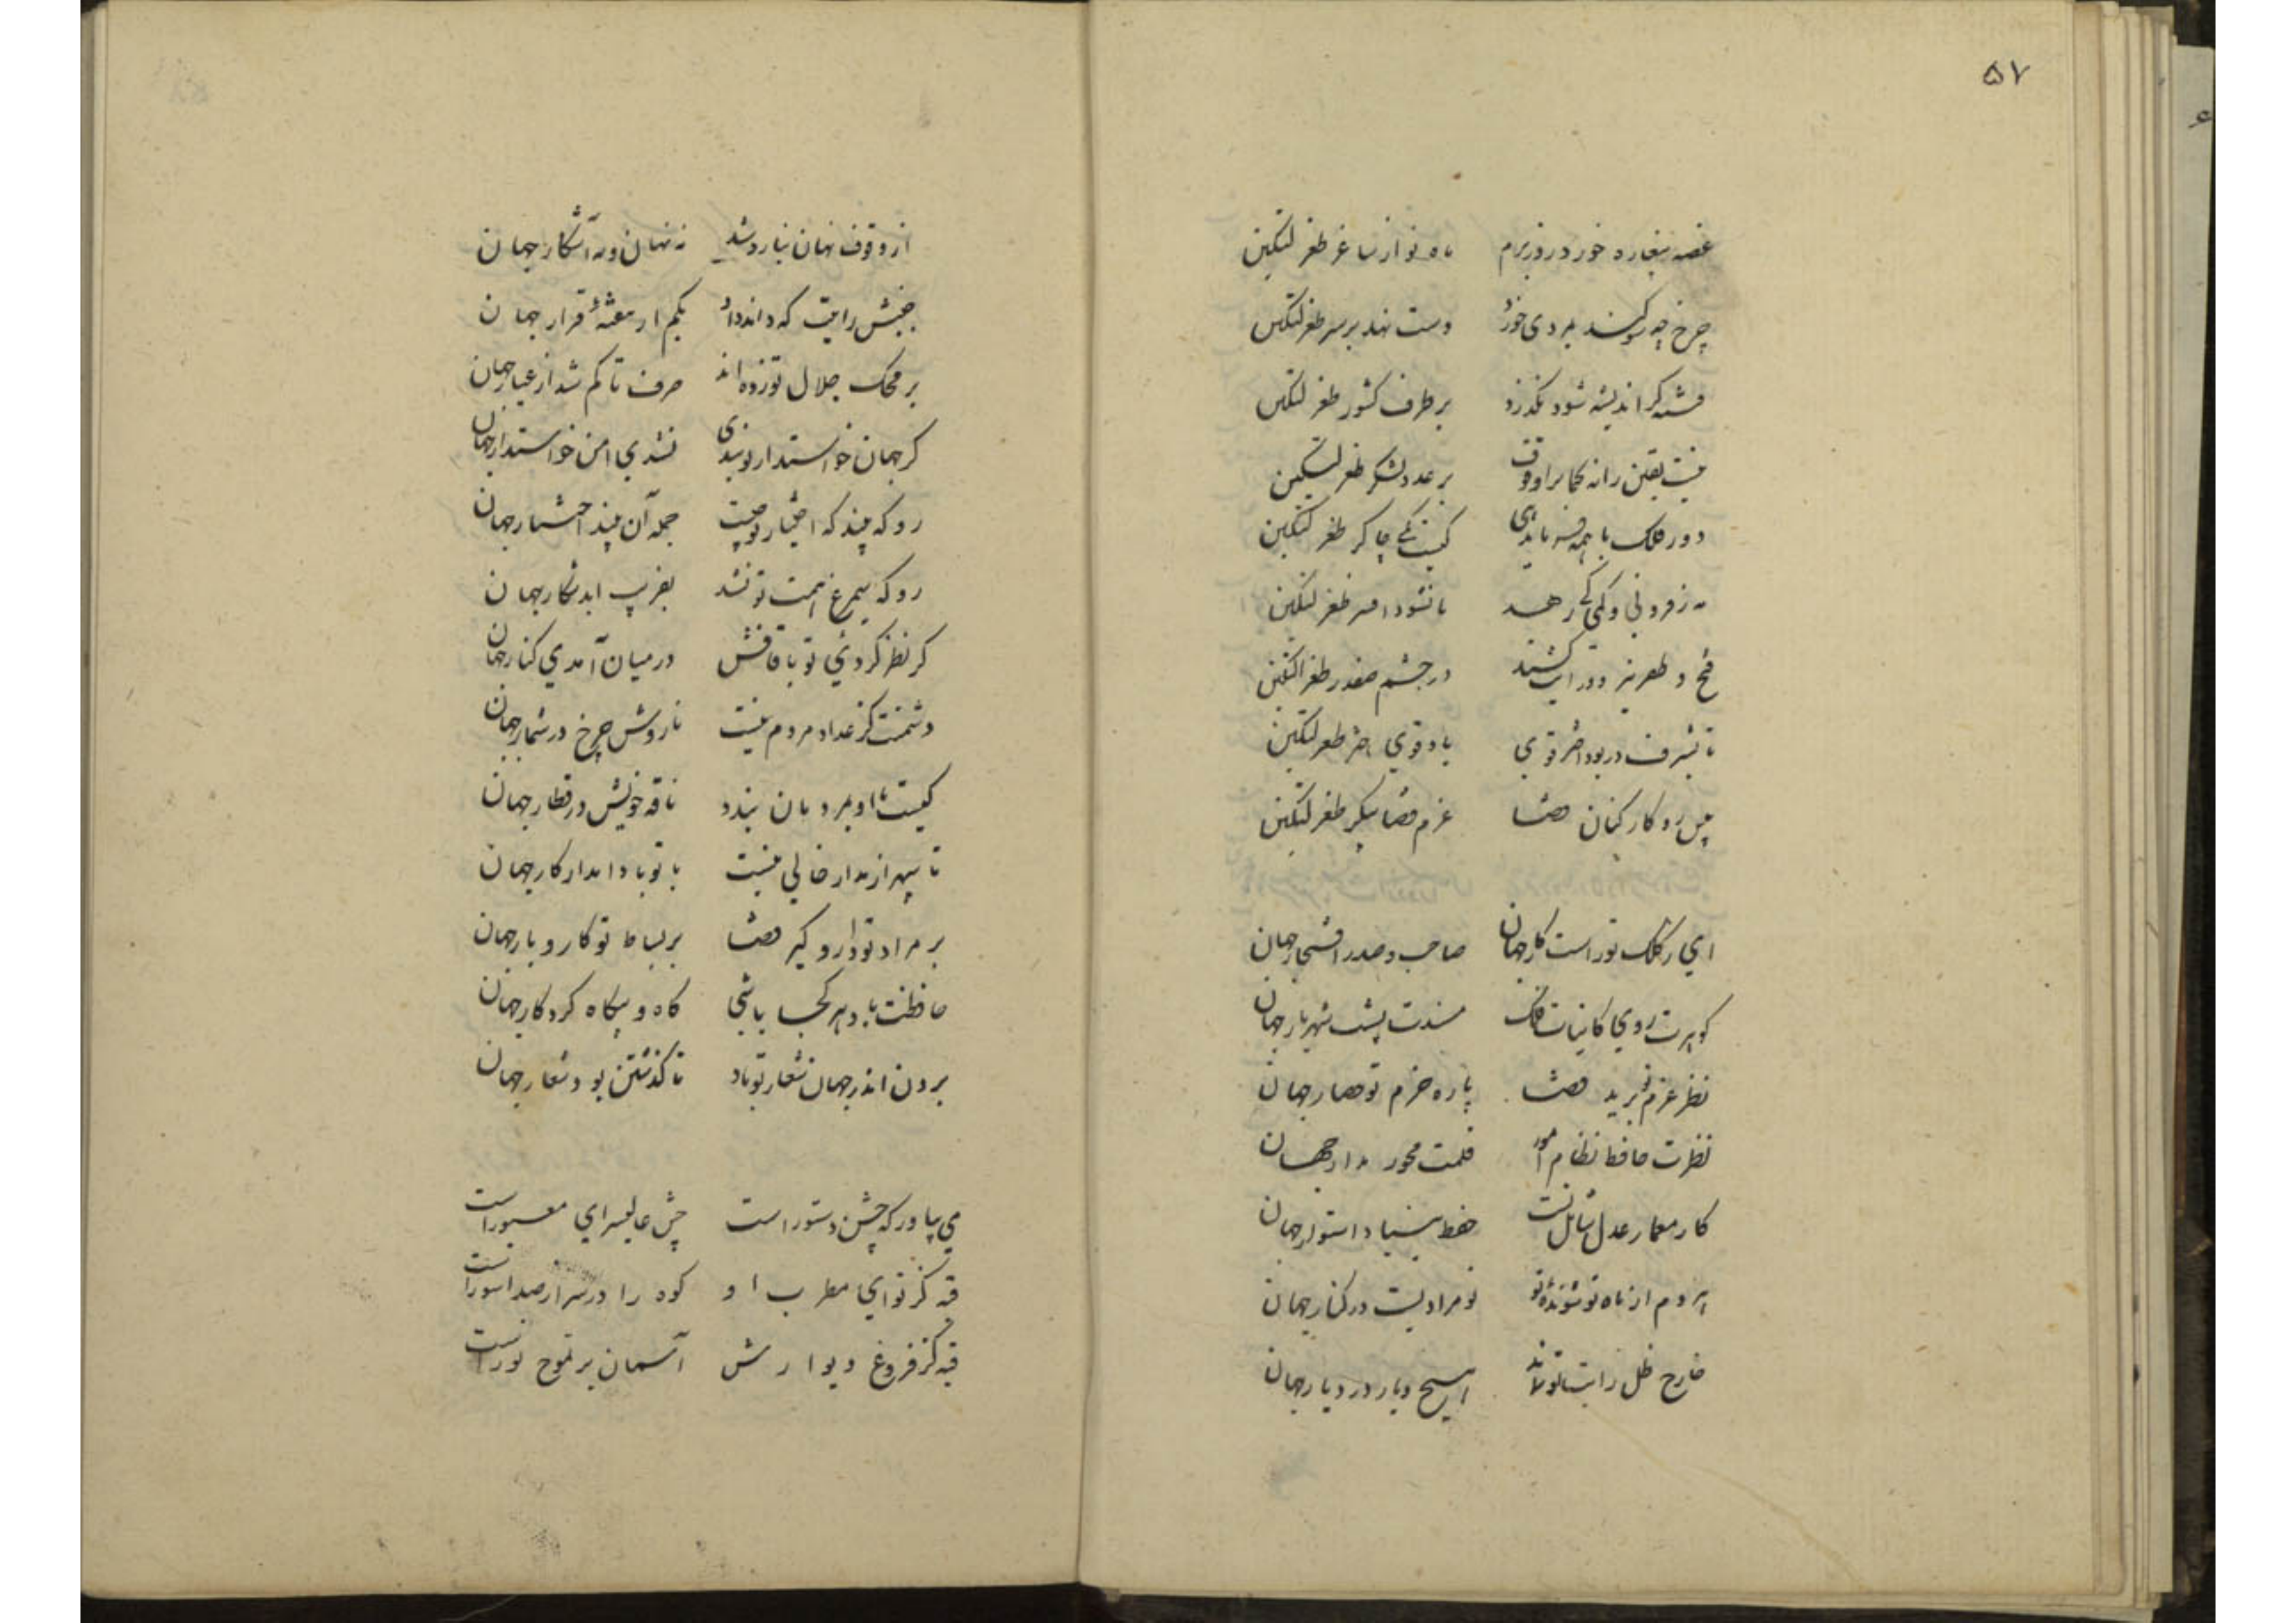 ۵۷
غصه بیغاره خورد روز بزم ماه نو از ساغر طغرلتکین
چرخ چو سوکند بمردی خورد دست نهد بر سر طغرلتکین
فتنه کر اندیشه شود نکذرد بر طرف کشور طغرلتکین
نیست یقین را نه کمان را وقوف بر عدد لشکر طغرلتکین
دور فلک با همه فرماندهی کیست یکی چاکر طغرلتکین
نه ز فزونی و کمی کی رهد تا نشود افسر طغرلتکین
فتح و ظفر هر دو رایت کشند در حشم صفدر طغرلتکین
تا بشرف در بود اختر قوی باد قوی اختر طغرلتکین
پیش رو کارکنان قضا عزم قضا پیکر طغرلتکین
ای ز کلک تو راست کار جهان صاحب و صدر افتخار جهان
کوهرت روی کاینات فلک مسندت پشت شهریار جهان
نظر عزم تو برید قضا باره حزم تو حصار جهان
نظرت حافظ نظام امور قلمت محور مدار جهان
کار معمار عدل شامل تست حفظ بنیاد استوار جهان
هر دم از ماه نو شونده تو نو مرادیست در کنار جهان
خارج ظل رایت تو نماند هیچ دیار در دیار جهان
از وقوف نهان نیارد شد نه نهان و نه آشکار جهان
جنبش رایت که داند داد بکم از هفته قرار جهان
بر محک جلال تو زده اند صرف تا کم شد از عیار جهان
کر جهان خواستدار تو نبدی نشدی امن خواستدار جهان
رو که چند که اختیار تو چیست جمله آن چند اختیار جهان
رو که سیمرغ همت تو نشد بفریب ابد شکار جهان
کر نظر کردئی تو با قافش در میان آمدی کنار جهان
دشمنت کز عداد مردم نیست نارودش چرخ در شمار جهان
کیست او بمردمان بندد ناقه خویش در قطار جهان
تا سپهر از مدار خالی نیست با تو بادا مدار کار جهان
بر مراد تو دار و کیر قضا بر بساط تو کار و بار جهان
حافظت باد هر کجا باشی کاه و بیکاه کردکار جهان
بردن اندر جهان شعار تو باد تا کذشتن بود شعار جهان
می بیاور که جشن دستور است جشن عالی سرای معمور است
قبه کز نوای مطرب او کوه را در سر از صدا سور است
قبه کز فروغ دیوارش آسمان بر تموج نور است